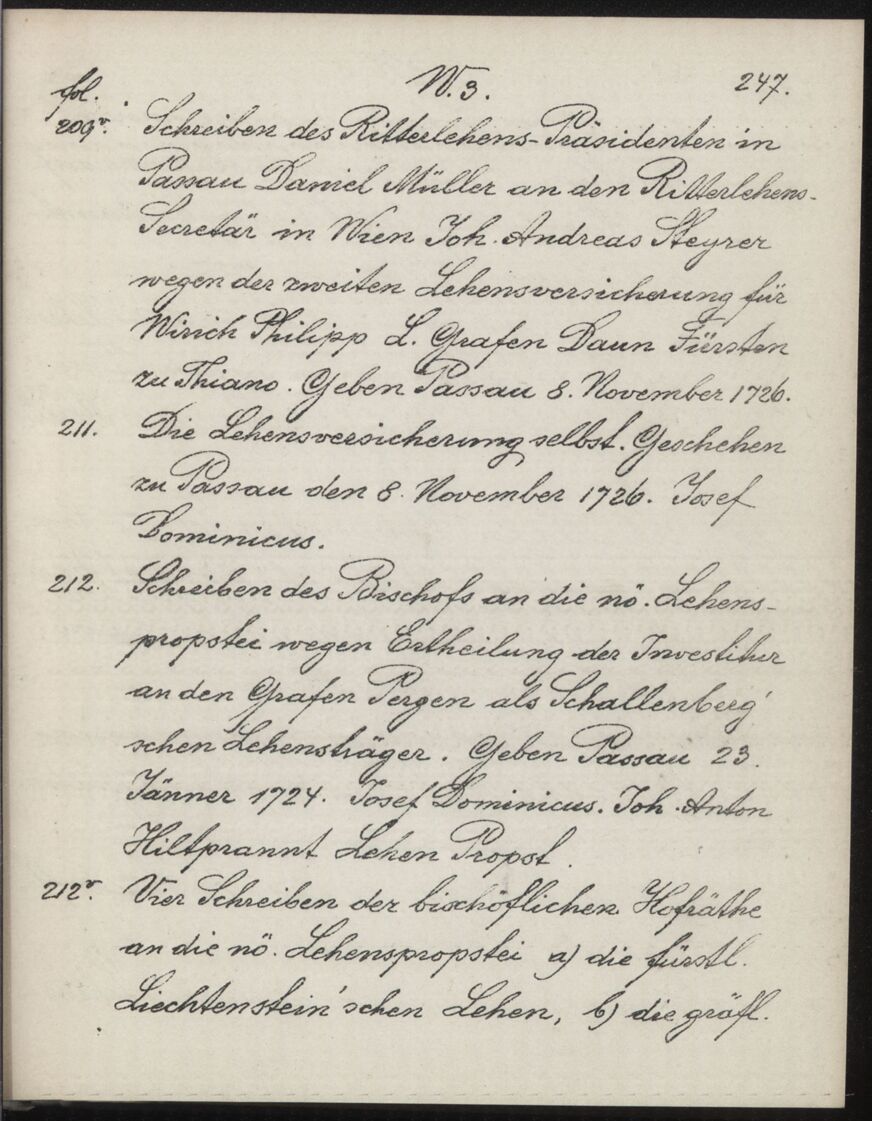 W. 3. 247.
fol.
209v. Schreiben des Ritterlehens-Präsidenten in
Passau Daniel Müller an den Ritterlehens-
Secretär in Wien Joh. Andreas Steyrer
wegen der zweiten Lehensversicherung für
Wirich Philipp L. Grafen Daun Fürsten
zu Thiano. Geben Passau 8. November 1726.
211. Die Lehensversicherung selbst. Geschehen
zu Passau den 8. November 1726. Josef
Dominicus.
212. Schreiben des Bischofs an die nö. Lehens-
propstei wegen Ertheilung der Investitur
an den Grafen Pergen als Schallenberg'
schen Lehensträger. Geben Passau 23.
Jänner 1724. Josef Dominicus. Joh. Anton
Hiltprannt Lehen Propst.
212v. Vier Schreiben der bischöflichen Hofräthe
an die nö. Lehenspropstei a) die fürstl.
Liechtenstein'schen Lehen, b) die gräfl.